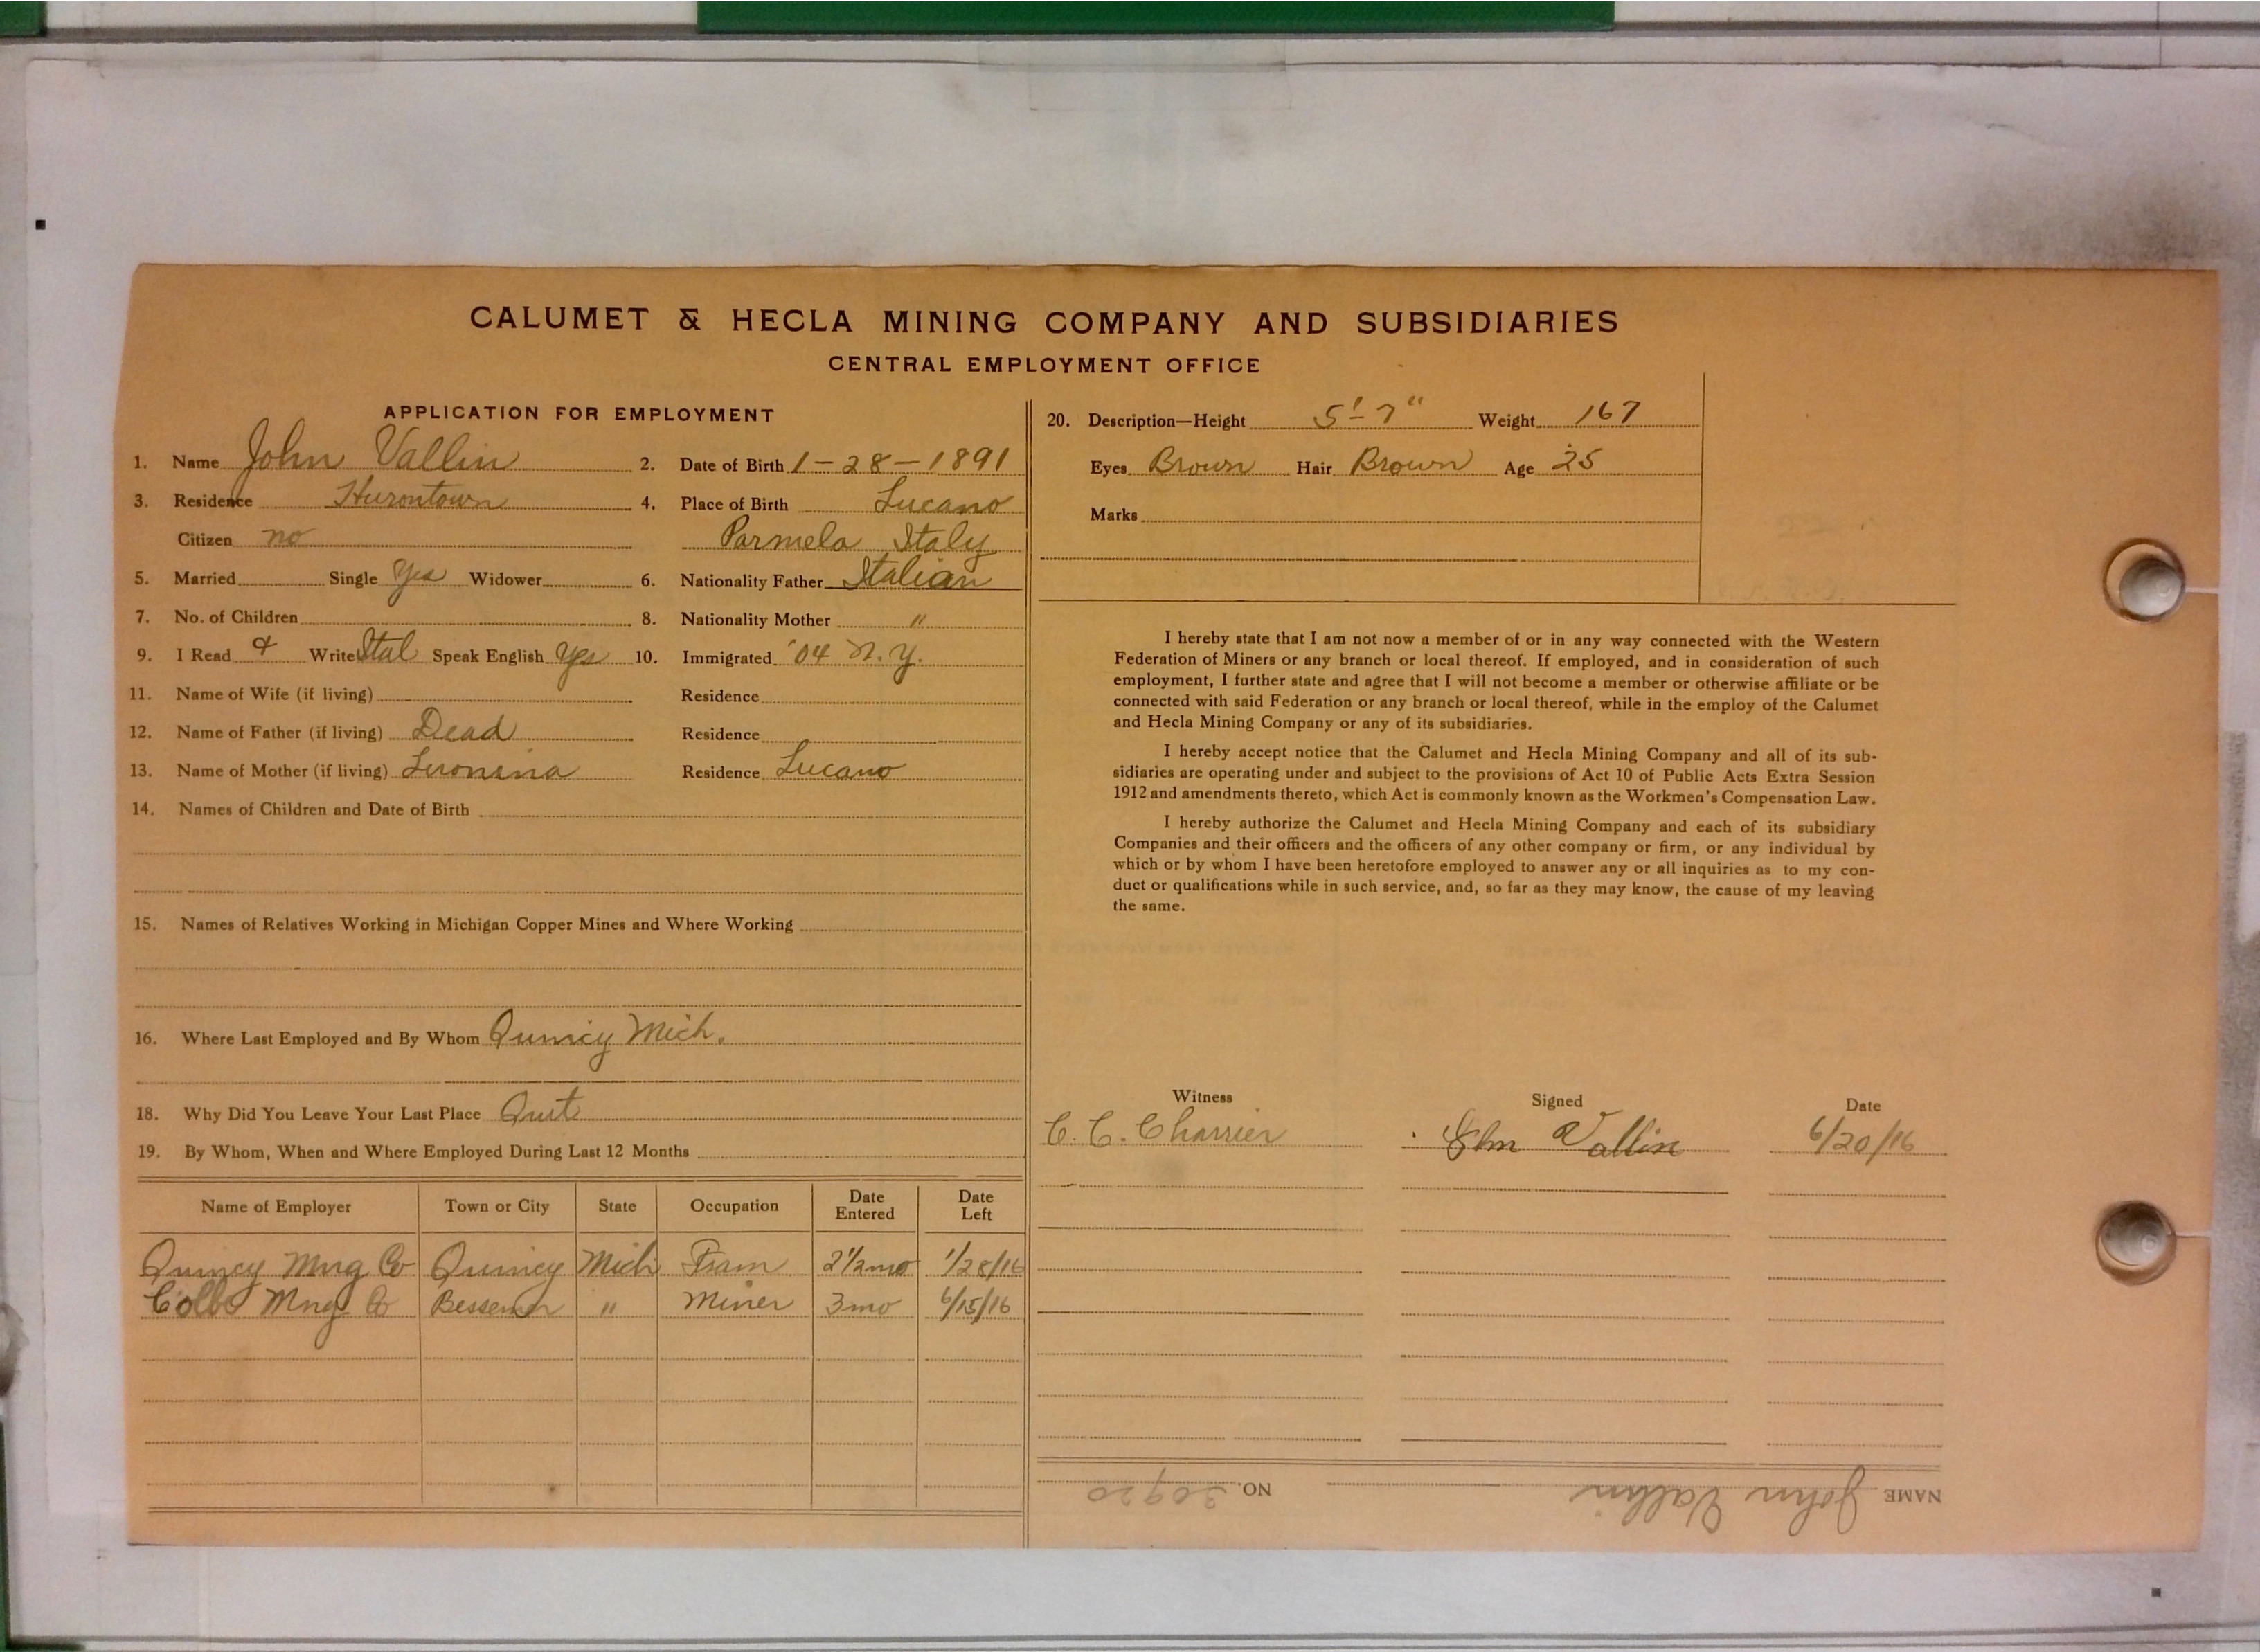 CALUMET & HECLA MINING COMPANY AND SUBSIDIARIES
CENTRAL EMPLOYMENT OFFICE
APPLICATION FOR EMPLOYMENT
1. Name John Vallin 2. Date of Birth 1-28-1891
3. Residence Hurontown 4. Place of Birth Lucano
Citizen no Parmela Italy
5. Married Single Yes Widower 6. Nationality Father Italian
7. No. of Children 8. Nationality Mother "
9. I Read & Write Ital Speak English Yes 10. Immigrated '04 N.Y.
11. Name of Wife (if living) Residence
12. Name of Father (if living) Dead Residence
13. Name of Mother (if living) Residence Lucano
14. Names of Children and Date of Birth
15. Names of Relatives Working in Michigan Copper Mines and Where Working
16. Where Last Employed and By Whom Quincy Mich.
18. Why Did You Leave Your Last Place Quit
19. By Whom, When and Where Employed During Last 12 Months
Name of Employer Town or City State Occupation Date Entered Date Left
Quincy Mng Co Quincy Mich Tram 2 1/2 mo 1/28/16
Colby Mng Co Bessemer " Miner 3 mo 6/15/16
20. Description—Height 5'-7" Weight 167
Eyes Brown Hair Brown Age 25
Marks
I hereby state that I am not now a member of or in any way connected with the Western
Federation of Miners or any branch or local thereof. If employed, and in consideration of such
employment, I further state and agree that I will not become a member or otherwise affiliate or be
connected with said Federation or any branch or local thereof, while in the employ of the Calumet
and Hecla Mining Company or any of its subsidiaries.
I hereby accept notice that the Calumet and Hecla Mining Company and all of its sub-
sidiaries are operating under and subject to the provisions of Act 10 of Public Acts Extra Session
1912 and amendments thereto, which Act is commonly known as the Workmen's Compensation Law.
I hereby authorize the Calumet and Hecla Mining Company and each of its subsidiary
Companies and their officers and the officers of any other company or firm, or any individual by
which or by whom I have been heretofore employed to answer any or all inquiries as to my con-
duct or qualifications while in such service, and, so far as they may know, the cause of my leaving
the same.
Witness Signed Date
C. C. Charrier John Vallin 6/20/16
NAME John Vallin NO. 30920